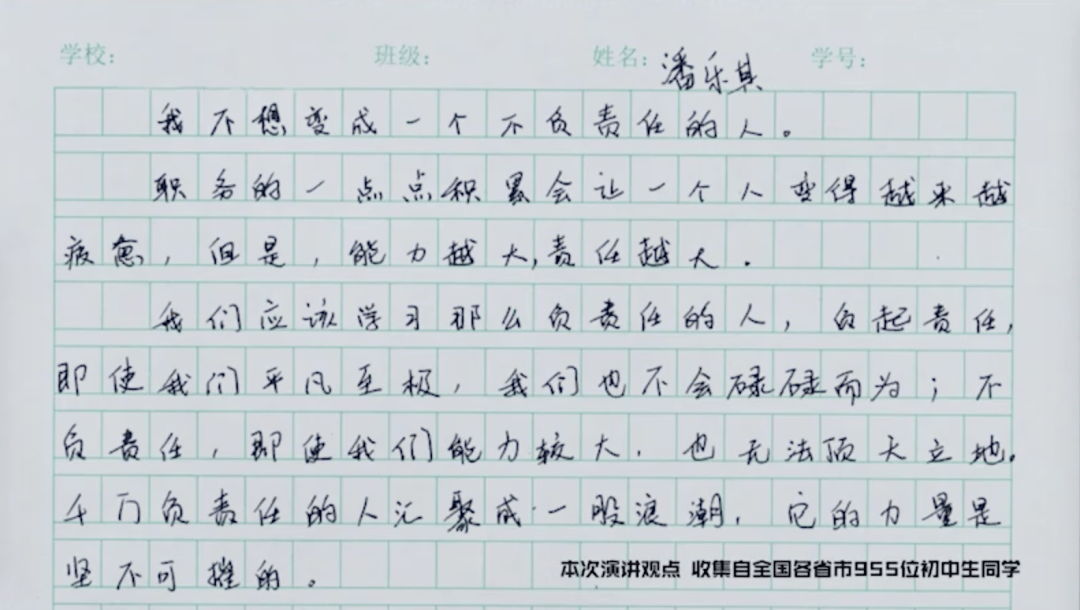 学校: 班级: 姓名: 潘乐其 学号:
我不想变成一个不负责任的人。
职务的一点点积累会让一个人变得越来越
疲惫，但是，能力越大,责任越大.
我们应该学习那么负责任的人，负起责任，
即使我们平凡至极，我们也不会碌碌而为；不
负责任，即使我们能力较大.也无法顶天立地.
千万负责任的人汇聚成一股浪潮，它的力量是
坚不可摧的。
本次演讲观点 收集自全国各省市955位初中生同学